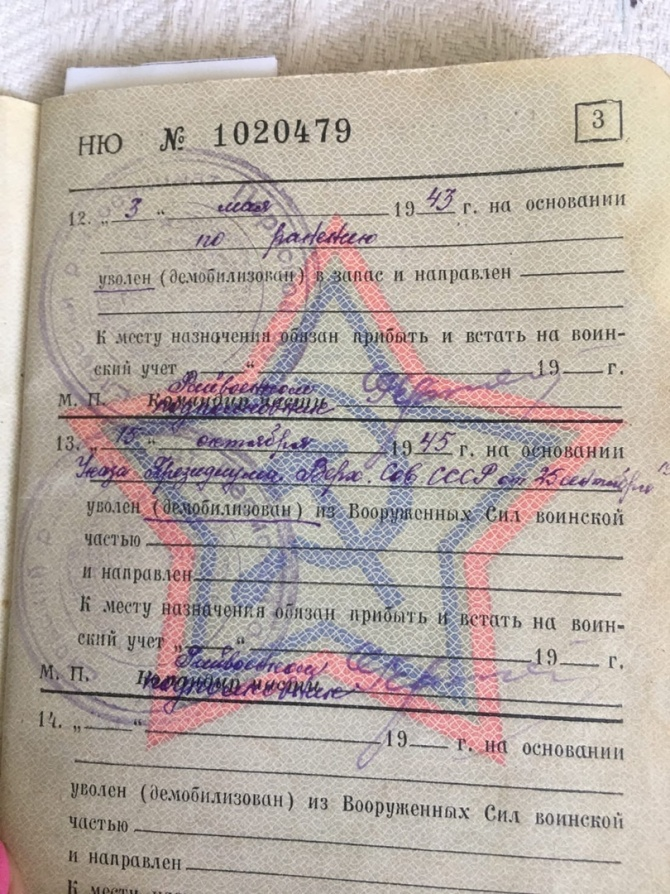 НЮ № 1020479 3
12. „ 3 “ мая 19 43 г. на основании
по ранению
уволен (демобилизован) в запас и направлен
К месту назначения обязан прибыть и встать на воин-
ский учет „ “ 19 г.
Райвоенком
М. П. Командир части
подполковник
13. „ 15 “ октября 19 45 г. на основании
Указа Президиума Верх. Сов. СССР от 25 сентября
уволен (демобилизован) из Вооруженных Сил воинской
частью
и направлен
К месту назначения обязан прибыть и встать на воин-
ский учет „ “ 19 г.
Райвоенком
М. П. Командир части
подполковник
14. „ “ 19 г. на основании
уволен (демобилизован) из Вооруженных Сил воинской
частью
и направлен
К месту